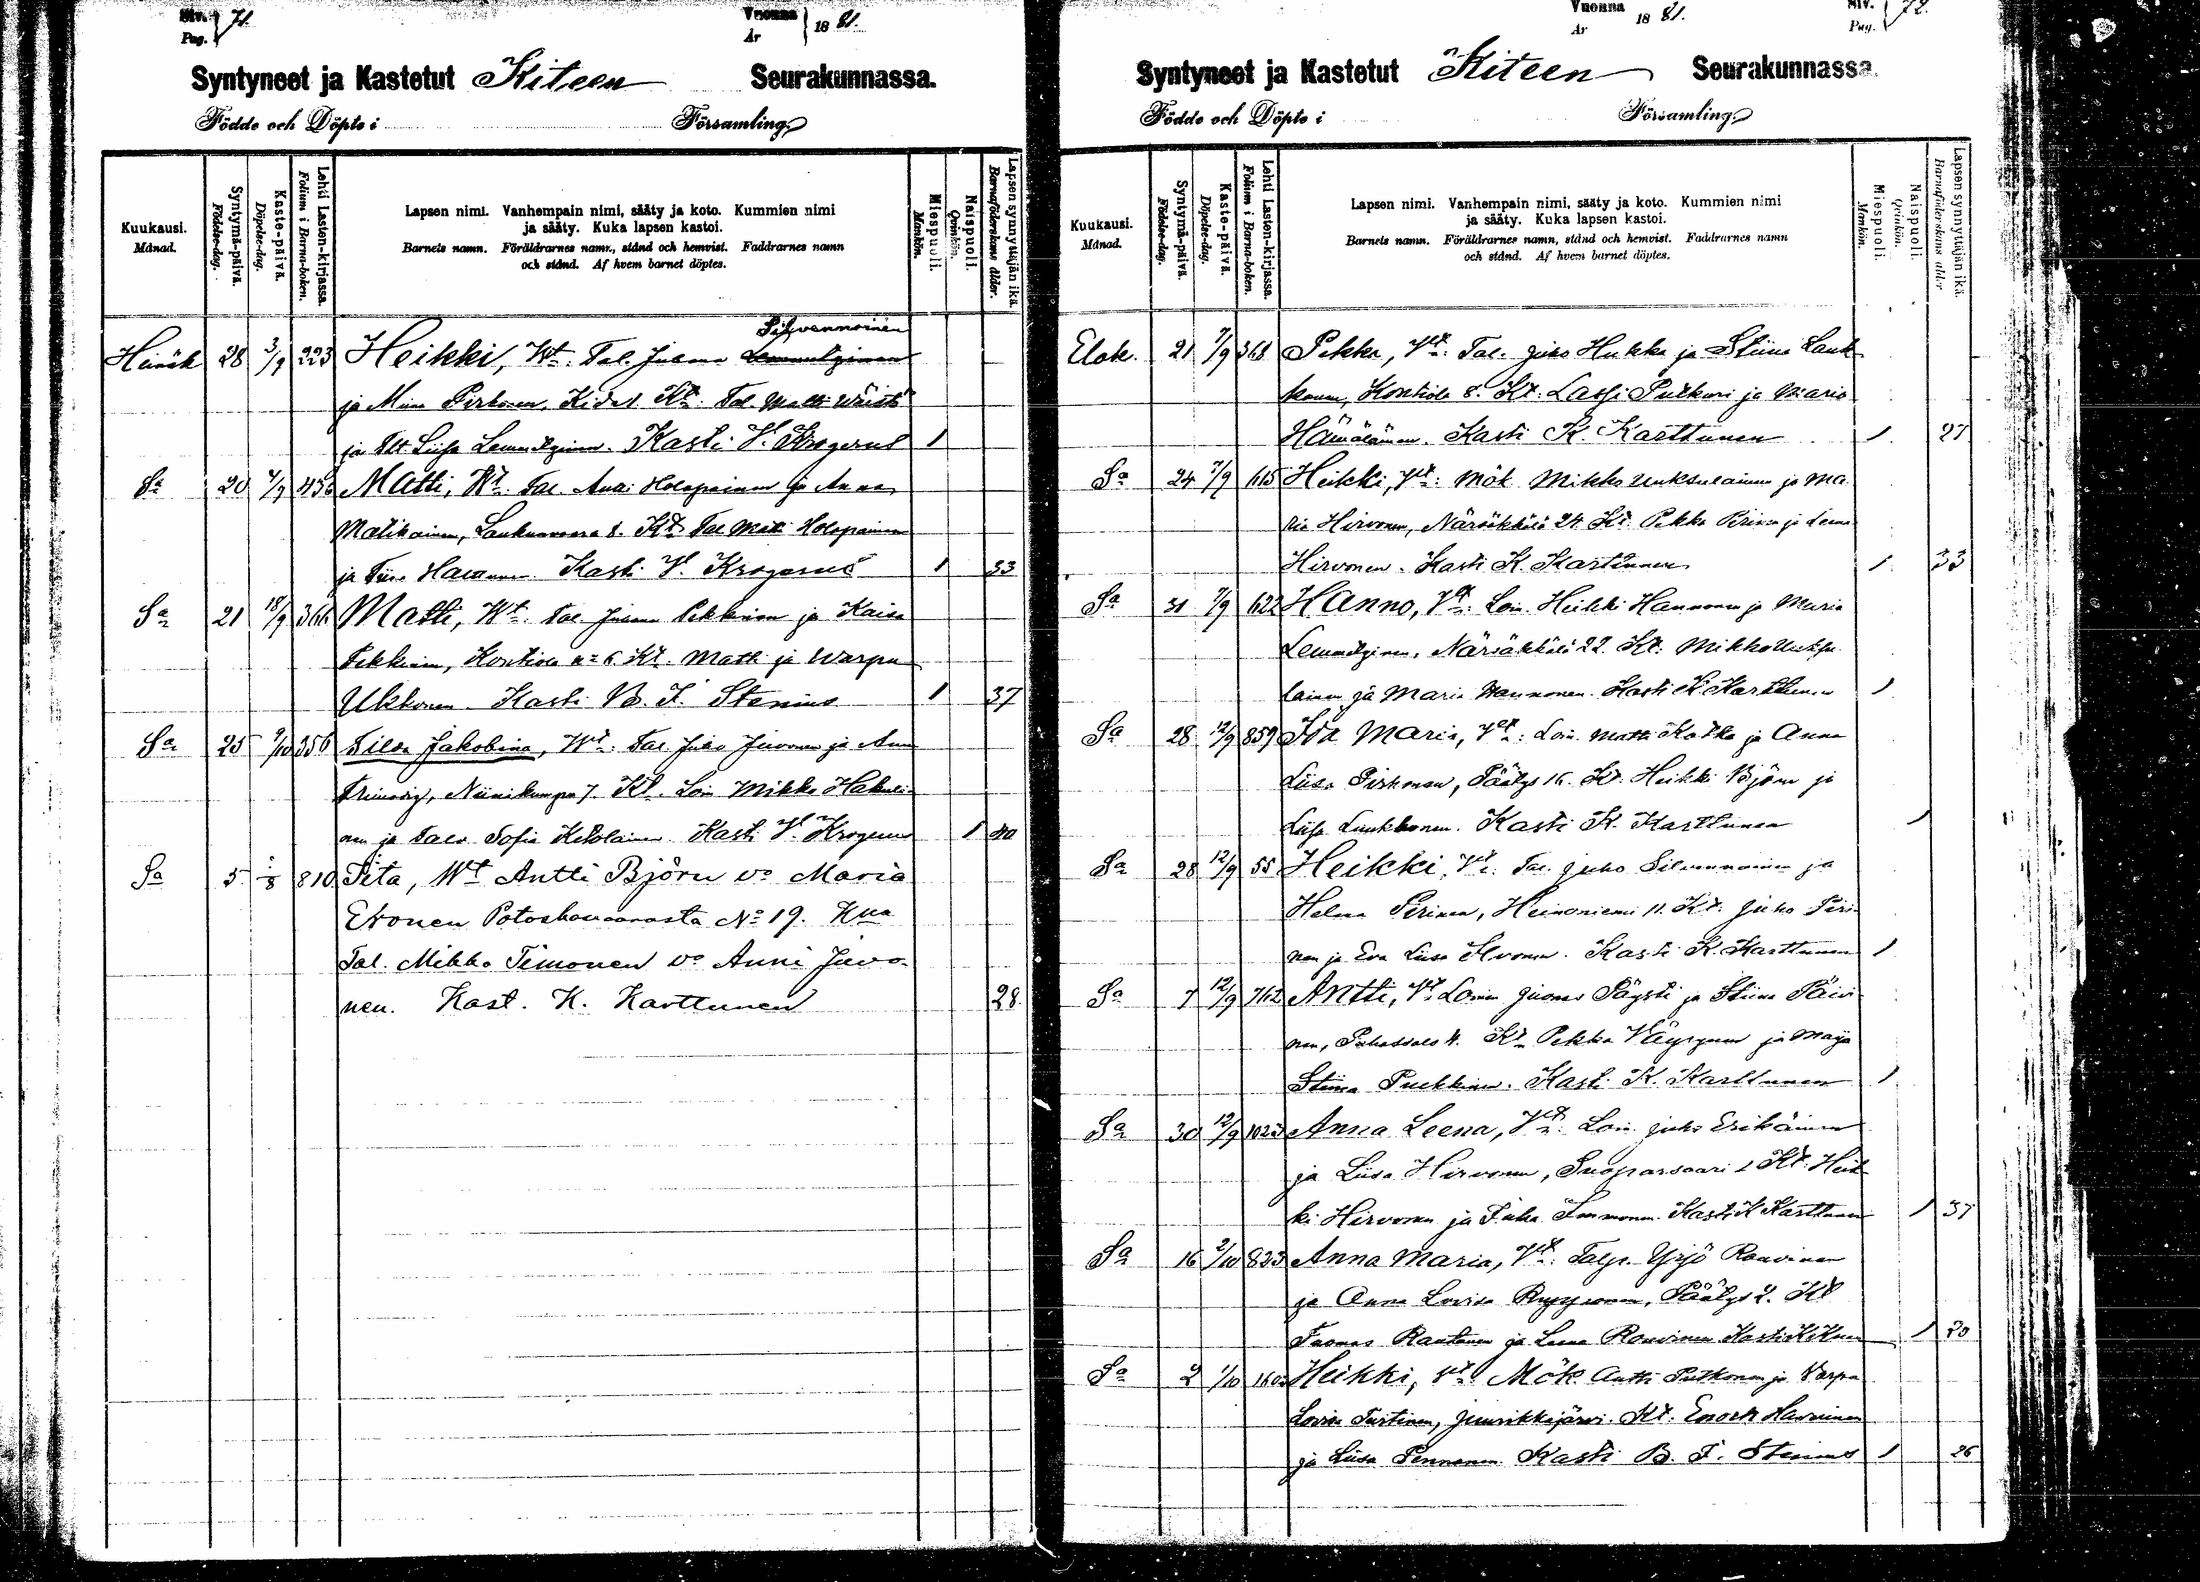 Siv. Pag. 71.
Vuonna År 1881.
Syntyneet ja Kastetut Kiteen Seurakunnassa.
Födde och Döpte i Församling
Kuukausi. Månad.
Syntymä-päivä. Födelse-dag.
Kaste-päivä. Döpelse-dag.
Lehti Lasten-kirjassa. Folium i Barna-boken.
Lapsen nimi. Vanhempain nimi, sääty ja koto. Kummien nimi
ja sääty. Kuka lapsen kastoi.
Barnets namn. Föräldrarnes namn, stånd och hemvist. Faddrarnes namn
och stånd. Af hvem barnet döptes.
Miespuoli. Mankön.
Naispuoli. Qvinkön.
Lapsen synnyttäjän ikä. Barnaföderskans ålder.
Silvennoinen
Heinäk 28 3/9 223 Heikki, Wt. Tal. Juhana
ja Miina Pirhonen, Kides Kt. Tal. Matti
ja Liisa Kasti V. Krogerus 1
Sa 20 4/9 Matti, Wt. Tal. Holopainen ja Anna
Matikainen, 8. Kt. Tal Matti Holopainen
ja Kasti V. Krogerus 1 33
Sa 21 18/9 366 Matti, Wt. Tal Juhana Pekkinen ja Kaisa
Kontiola No 6. Kt. Matti ja Warpu
Ukkonen. Kasti B. F. Stenius 1 37
Sa 25 9/10 356 Silda Jakobina, Wt. Tal Juho Juvonen ja Anna
Niinikumpu 7. Kt. Loi Mikko Hakuli-
nen ja Sofia Ketolainen. Kasti V. Krogerus 1 40
Sa 5 /8 810 Pita, Wt Antti Björn vo Maria
Eronen Potoskavaarasta No 19. Kua
Tal. Mikko Timonen vo Anni Juvo-
nen. Kast. K. Karttunen 28.
Siv. Pag. 72.
Vuonna År 1881.
Syntyneet ja Kastetut Kiteen Seurakunnassa.
Födde och Döpte i Församling
Kuukausi. Månad.
Syntymä-päivä. Födelse-dag.
Kaste-päivä. Döpelse-dag.
Lehti Lasten-kirjassa. Folium i Barna-boken.
Lapsen nimi. Vanhempain nimi, sääty ja koto. Kummien nimi
ja sääty. Kuka lapsen kastoi.
Barnets namn. Föräldrarnes namn, stånd och hemvist. Faddrarnes namn
och stånd. Af hvem barnet döptes.
Miespuoli. Mankön.
Naispuoli. Qvinkön.
Lapsen synnyttäjän ikä. Barnaföderskans ålder
Elok. 21 7/9 368 Pekka, Vt. Tal. Juho Hukka ja Stiina Lauk-
kanen, Kontiola 8. Kt. Lassi Pulkkinen ja Maria
Hämäläinen. Kasti K. Karttunen 1 27
Sa 24 7/9 615 Heikki, Vt. Mök. Mikko Uuksulainen ja Ma-
ria Hirvonen, Närsäkkälä 24. Kt. Pekka Pirinen ja Leena
Hirvonen. Kasti K. Karttunen 1 33
Sa 31 7/9 622 Hanno, Vt. Loi. Heikki Hannonen ja Maria
Närsäkkälä 22. Kt. Mikko Uuksu-
lainen ja Maria Hannonen. Kasti K. Karttunen 1
Sa 28 12/9 859 Ida Maria, Vt. Loi. Matti Kokko ja Anna
Liisa Pirhonen, Päätys 16. Kt. Heikki Björn ja
Liisa Luukkonen. Kasti K. Karttunen 1
Sa 28 12/9 55 Heikki, Vt. Tal. Juho Silvennoinen ja
Helena Pirinen, Heinoniemi 11. Kt. Juho Piri-
nen ja Eva Liisa Kasti K. Karttunen 1
Sa 7 12/9 762 Antti, Vt. Loinen Juonas Päysti ja Stiina Päivi-
nen, Puhossalo 4. Kt. Pekka Väyrynen ja Maija
Stiina Puukkinen. Kasti K. Karttunen 1
Sa 30 12/9 1023 Anna Leena, Vt. Loi. Juho Erikäinen
ja Liisa Hirvonen, Suoparsaari 1 Kt. Heik-
ki Hirvonen ja Immonen. Kasti K Karttunen 1 37
Sa 16 2/10 823 Anna Maria, Vt. Talp. Yrjö Ronvinen
ja Anna Lovisa Päätys 2. Kt
Tuomas Rautanen ja Leena Ronvinen Kasti 1 20
Sa 2 1/10 Heikki, Vt. Mök. Antti Putkonen ja Varpu
Lovisa Turtinen, Juurikkajärvi. Kt. Enock
ja Liisa Pennanen Kasti B. F. Stenius 1 26